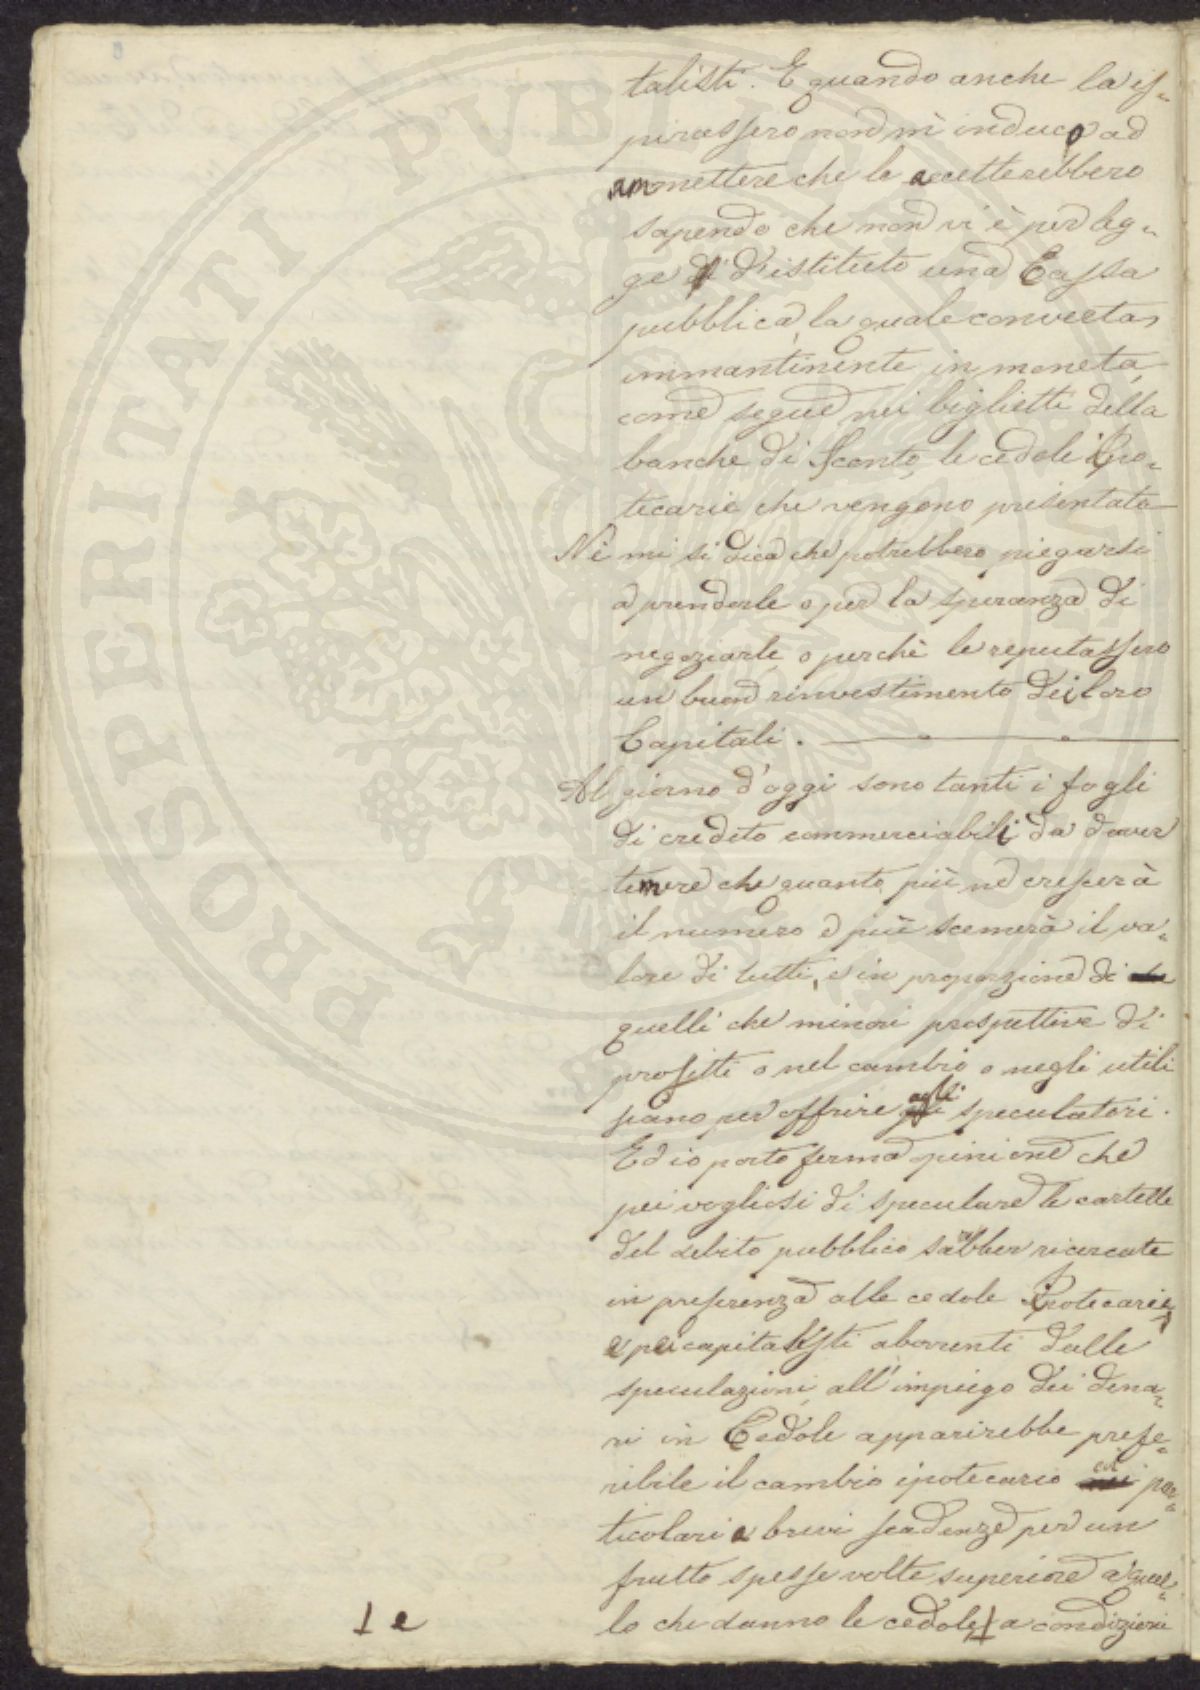 talisti. E quando anche la is=
pirassero non m'induco ad
ammettere che le accetterebbero
sapendo che non vi è per leg=
ge istituto una Cassa
pubblica, la quale converta
immantinente in moneta,
come segue nei biglietti della
banche di Sconto, le cedole Ipo=
tecarie che vengono presentate
Nè mi si dica che potrebbero piegarsi
a prenderle o per la speranza di
negoziarle, o perchè le reputassero
un buon rinvestimento dei loro
Capitali.
Al giorno d'oggi sono tanti i fogli
di credito commerciabili da dover
temere che quanto più ne crescerà
il numero e più scemerà il va=
lore di tutti, e in proporzione di
quelli che minori prospettive di
profitti o nel cambio o negli utili
siano per offrire agli speculatori.
Ed io porto ferma opinione che
pei vogliosi di speculare le cartelle
del debito pubblico sarebber ricercate
in preferenza alle cedole Ipotecarie,
e pei capitalisti aborrenti dalle
speculazioni, all'impiego dei dena=
ri in Cedole apparirebbe prefe=
ribile il cambio ipotecario coi par=
ticolari a brevi scadenze per un
frutto spesse volte superiore a quel=
lo che danno le cedole, ⊥ a condizioni
⊥ e
PROSPERITATI PUBLICAE